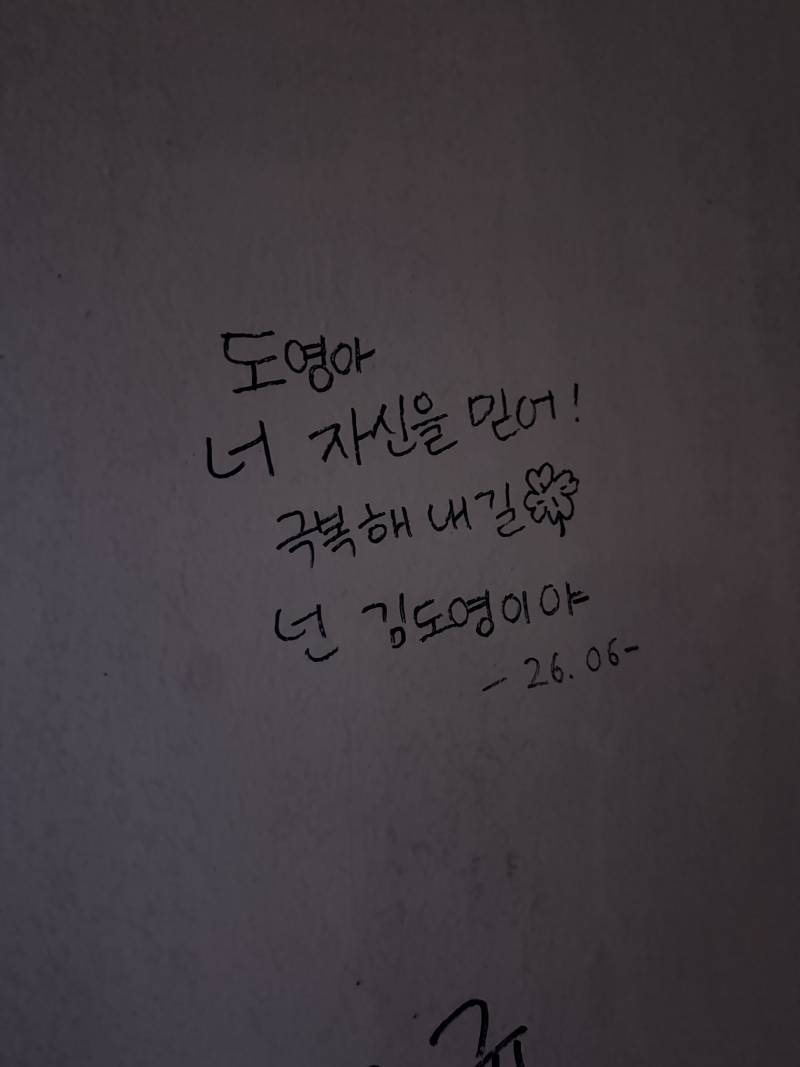 도영아
너 자신을 믿어!
극복해 내길
넌 김도영이야
- 26. 06-